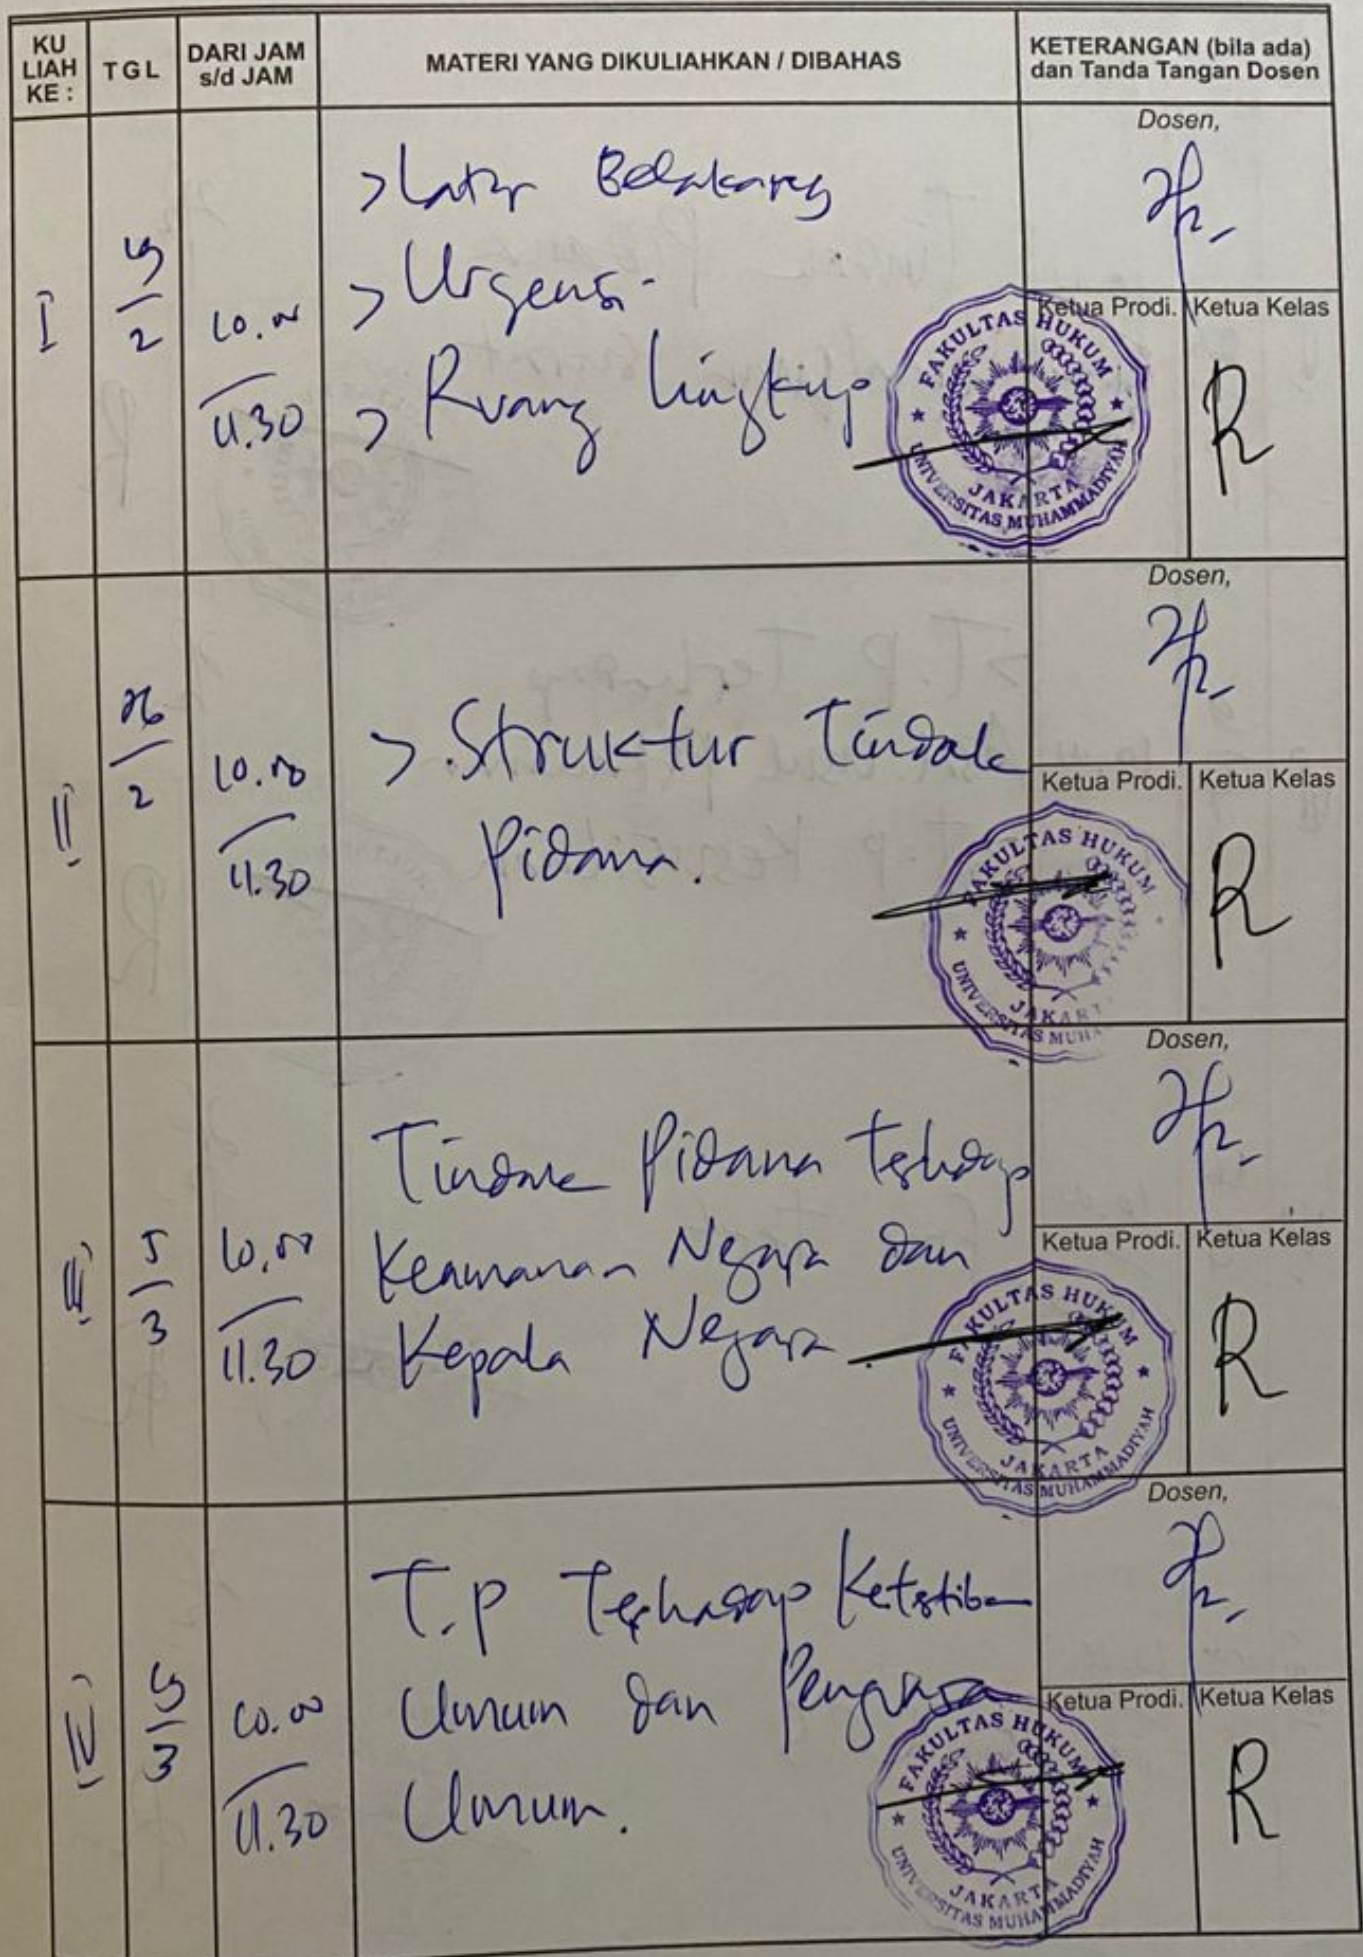 KU
LIAH
KE :
TGL
DARI JAM
s/d JAM
MATERI YANG DIKULIAHKAN / DIBAHAS
KETERANGAN (bila ada)
dan Tanda Tangan Dosen
I
19
2
10.00
11.30
> Latar Belakang
> Urgensi
> Ruang lingkup
Dosen,
Ketua Prodi.
Ketua Kelas
R
FAKULTAS HUKUM
UNIVERSITAS MUHAMMADIYAH
JAKARTA
II
26
2
10.00
11.30
> Struktur Tindak
Pidana.
Dosen,
Ketua Prodi.
Ketua Kelas
R
FAKULTAS HUKUM
UNIVERSITAS MUHA
JAKART
III
5
3
10.00
11.30
Tindak Pidana Terhadap
Keamanan Negara dan
Kepala Negara
Dosen,
Ketua Prodi.
Ketua Kelas
R
FAKULTAS HUKUM
UNIVERSITAS MUHAMMADIYAH
JAKARTA
IV
3
10.00
11.30
T.P Terhadap Ketertiban
Umum dan Penguasa
Umum.
Dosen,
Ketua Prodi.
Ketua Kelas
R
FAKULTAS HUKUM
UNIVERSITAS MUHAMMADIYAH
JAKARTA